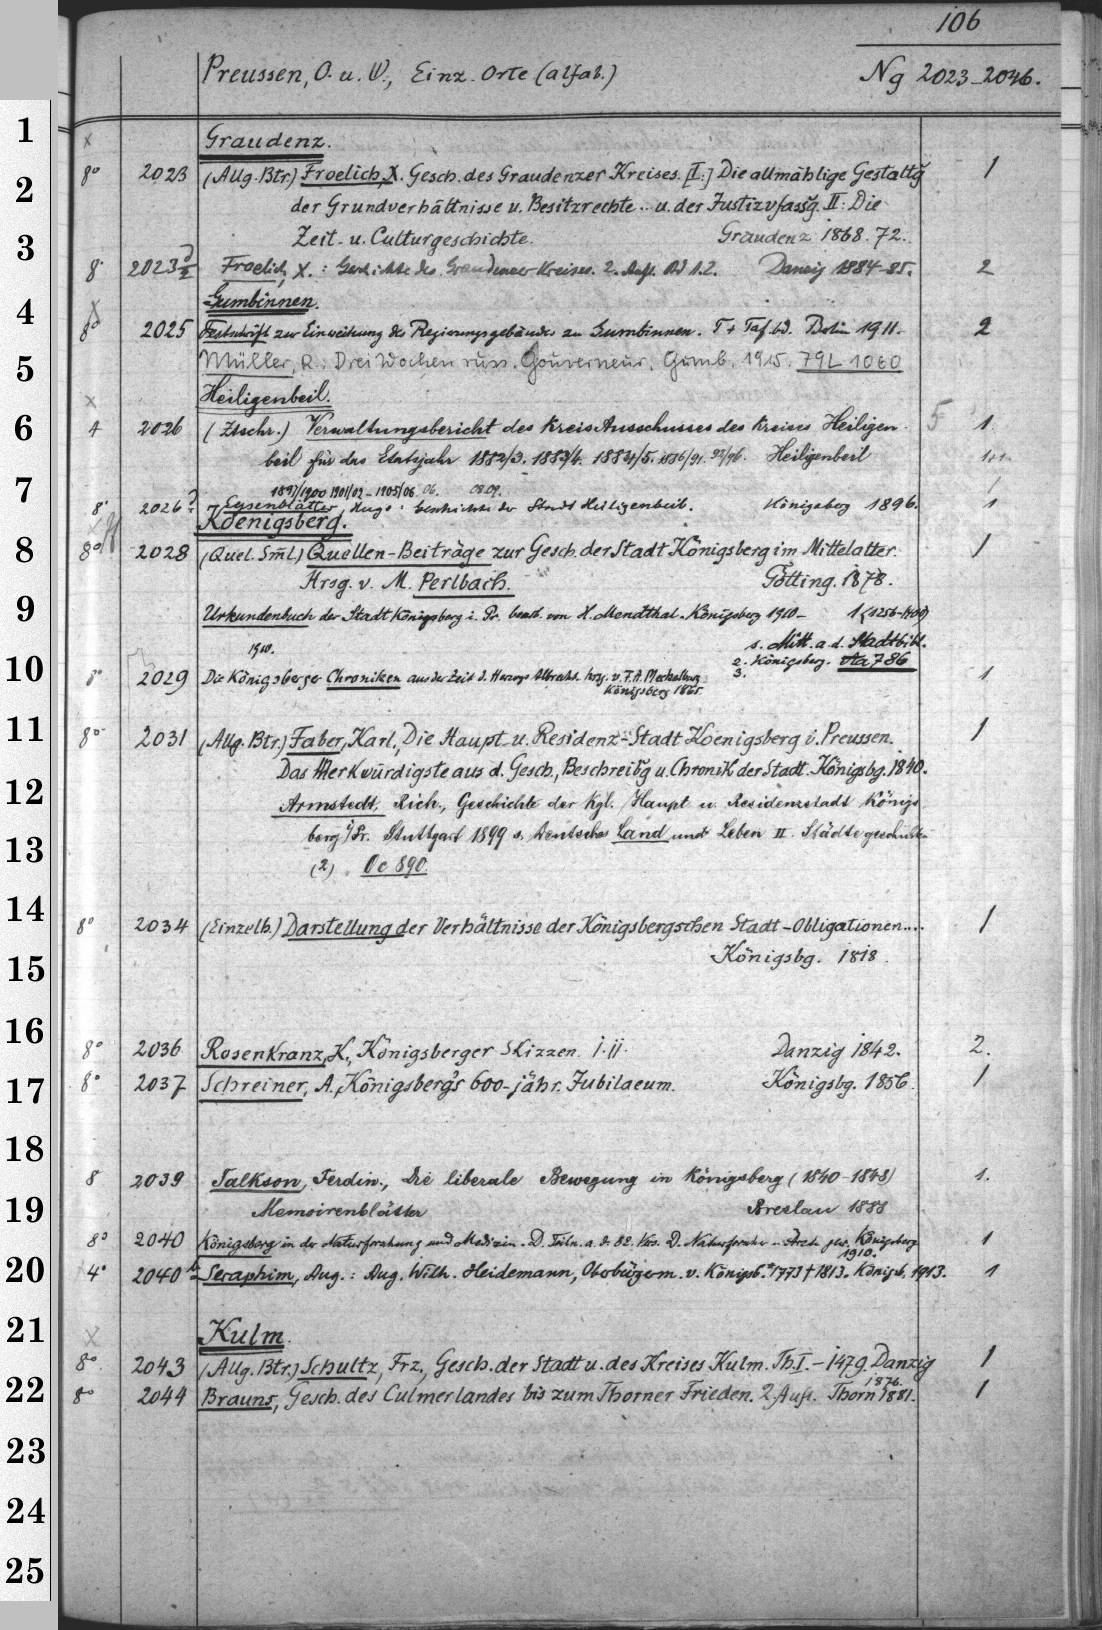 106
Preussen, O. u. W., Einz. Orte (alfab.) Ng 2023-2046.
1
x Graudenz.
8° 2023 (Allg. Btr.) Froelich, X. Gesch. des Graudenzer Kreises. [I:] Die allmählige Gestaltg 1
2
der Grundverhältnisse u. Besitzrechte .. u. der Justizvfassg. II: Die
3
Zeit- u. Culturgeschichte. Graudenz 1868. 72.
8° 2023 Froelich, X.: Geschichte des Graudenzer Kreises. 2. Aufl. Bd 1.2. Danzig 1884-85. 2
4
Gumbinnen.
8° 2025 Festschrift zur Einweihung des Regierungsgebäudes zu Gumbinnen. T + Taf. bd. Berlin 1911. 2
5
Müller, R.: Drei Wochen russ. Gouverneur. Gumb. 1915. 79L 1060
x Heiligenbeil.
6
4 2026 (Ztschr.) Verwaltungsbericht des Kreis Ausschusses des Kreises Heiligen- 5 1
beil für das Etatsjahr 1882/3. 1883/4. 1884/5. 1886/91. 92/96. Heiligenbeil
7
1897/1900 1901/02-1905/06. 06. 08.09.
8° 2026 Eysenblätter, Hugo: Geschichte der Stadt Heiligenbeil. Königsberg 1896. 1
Koenigsberg.
8
8° 2028 (Quel. Sml.) Quellen-Beiträge zur Gesch. der Stadt Königsberg im Mittelalter. 1
Hrsg. v. M. Perlbach. Götting. 1878.
9
Urkundenbuch der Stadt Königsberg i. Pr. bearb. von H. Mendthal. Königsberg 1910- 1 (1256-1400)
1910. s. Mitt. a. d. Stadtbibl.
2. Königsberg. Aa 786
10
8° 2029 Die Königsberger Chroniken aus der Zeit d. Herzogs Albrecht. hrsg. v. F. A. Meckelburg 3. 1
Königsberg 1865.
11
8° 2031 (Allg. Btr.) Faber, Karl, Die Haupt- u. Residenz-Stadt Koenigsberg i. Preussen. 1
Das Merkwürdigste aus d. Gesch., Beschreibg u. Chronik der Stadt. Königsbg. 1840.
12
Armstedt, Rich., Geschichte der Kgl. Haupt u. Residenzstadt Königs
13
berg i/Pr. Stuttgart 1899 s. Deutsches Land und Leben II. Städtegeschichten
(2) Oc 890.
14
8° 2034 (Einzelh.) Darstellung der Verhältnisse der Königsbergschen Stadt-Obligationen.... 1
15
Königsbg. 1818.
16
8° 2036 Rosenkranz, K., Königsberger Skizzen. I. II. Danzig 1842. 2.
17
8° 2037 Schreiner, A., Königsberg's 600-jähr. Jubilaeum. Königsbg. 1856. 1
18
8 2039 Falkson, Ferdin., Die liberale Bewegung in Königsberg (1840-1848) 1.
19
Memoirenblätter Breslau 1888
8° 2040 Königsberg in der Naturforschung und Medizin. D. Teiln. a. d. 82. Vers. D. Naturforscher .. Ärzte gew. Königsberg 1910. 1
20
4° 2040 b Seraphim, Aug.: Aug. Wilh. Heidemann, Oberbürgerm. v. Königsb. *1773 †1813. Königsb. 1913. 1
21
x Kulm.
8° 2043 (Allg. Btr.) Schultz, Frz., Gesch. der Stadt u. des Kreises Kulm. Th. I. -1479. Danzig 1876. 1
22
8° 2044 Brauns, Gesch. des Culmerlandes bis zum Thorner Frieden. 2. Aufl. Thorn 1881. 1
23
24
25